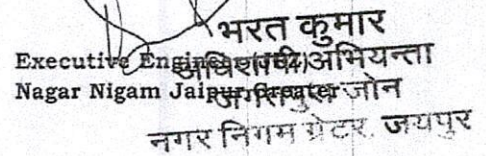 भरत कुमार
Executive Engineer (JGZ)
अधिशाषी अभियन्ता
Nagar Nigam Jaipur Greater
जगतपुरा जोन
नगर निगम ग्रेटर, जयपुर